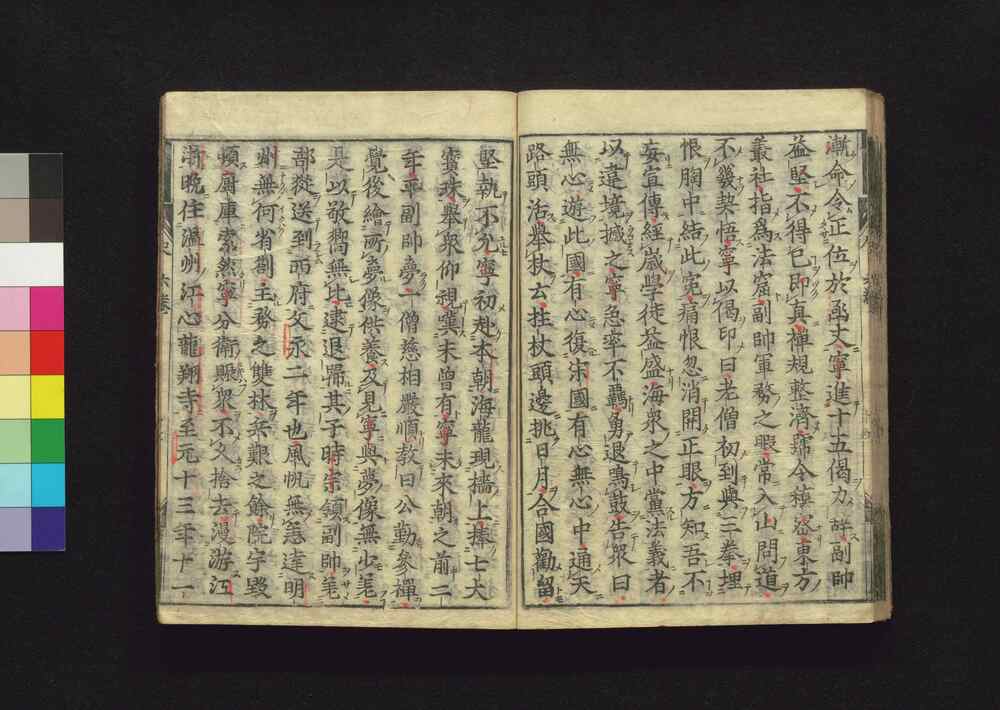 漸命令正位於函丈寧進十五偈力辞副帥
益堅不得已即真禪規整濟濡令穆容東方
叢社指為法窟副帥軍務之暇常入山問道
不幾契悟寧以偈印曰老僧初到與三拳埋
恨胸中結此寃痛恨忽消開正眼方知吾不
妄宣傳經歳學徒益盛海衆之中黨法義者
以違境撼之寧急率不轟勇退鳴鼓告衆曰
無心遊此國有心復宋國有心無心中通天
路頭活擧杖云拄杖頭邊挑日月合國勸留
堅執不允寧初赴本朝海龍現檣上捧七大
寳珠擧衆仰視冀未曾有寧未來朝之前二
年平副帥夢一僧慈相嚴順教曰公勤參禪
覺後繪所夢像供養及見寧與夢像無少差
是以敬嚮無比逮退歸其子時宗領副帥差
部從送到西府文永二年也風帆無恙達明
州無何省劄主務之雙林兵艱之餘院宇毀
頓廚庫索然寧分衛賑衆不久捨去漫游江
浙晩住温州江心龍翔寺至元十三年十一
史 六巻